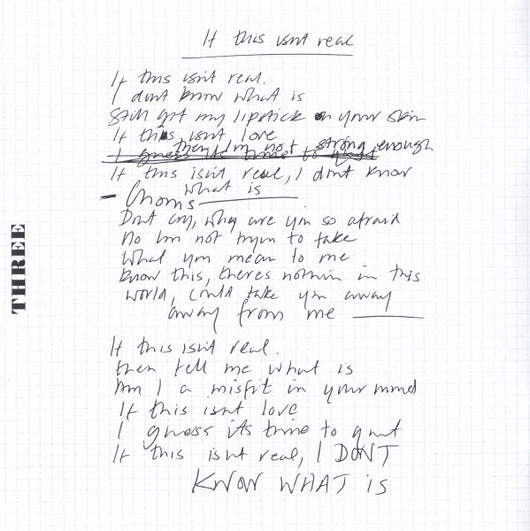 If this isnt real
If this isnt real.
I dont know what is
Still got my lipstick on your skin
If this isnt love
then Im not strong enough
I guess its time to quit
If this isnt real, I dont know
what is
- Chorus
Dont cry, why are you so afraid
No Im not tryin to take
What you mean to me
know this, theres nothin in this
world, could take you away
away from me
THREE
If this isnt real.
then tell me what is
Am I a misfit in your mind
If this isnt love
I guess its time to quit
If this isnt real, I DONT
KNOW WHAT is